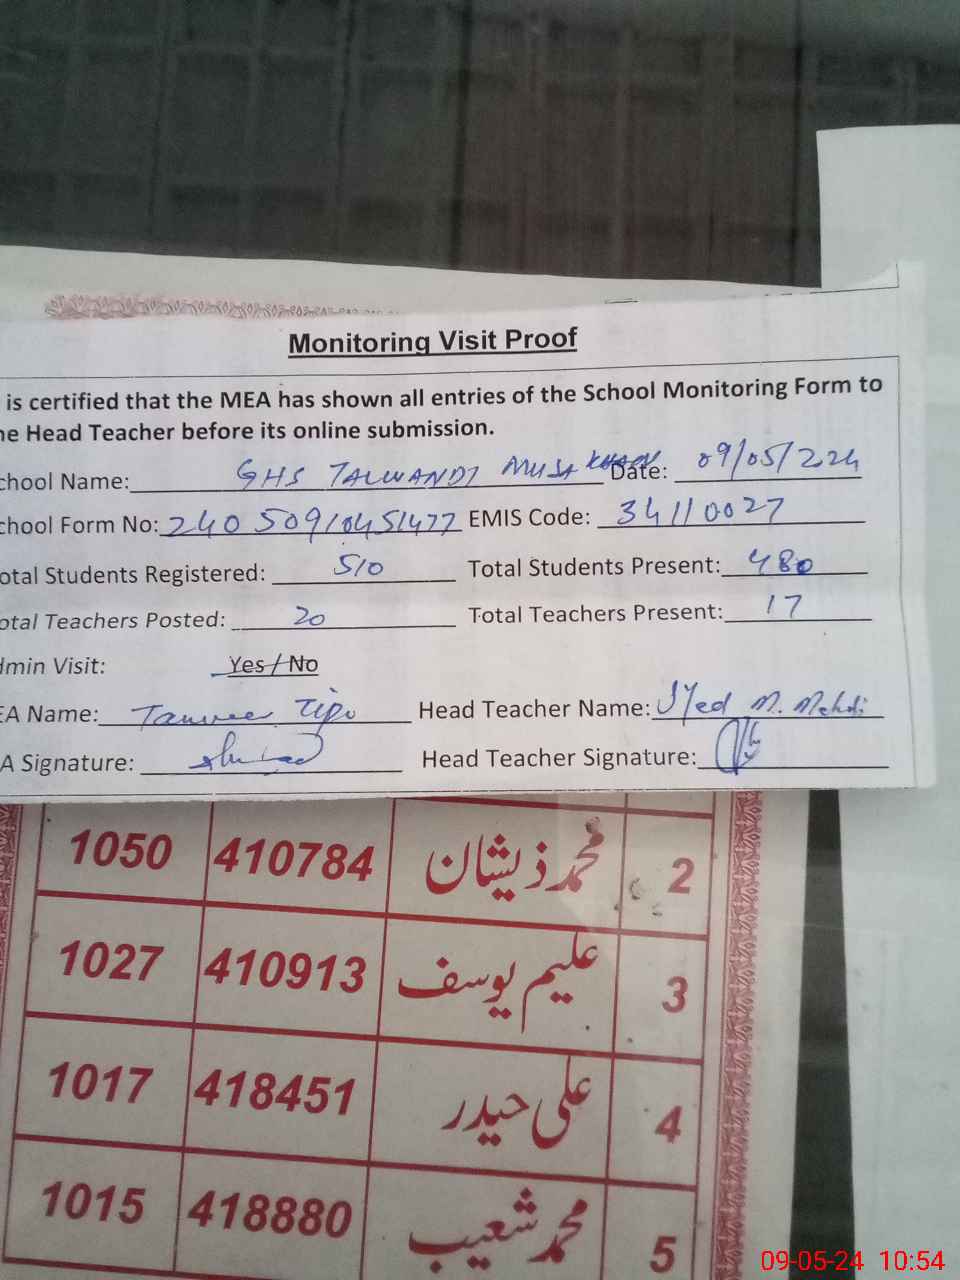 Monitoring Visit Proof
is certified that the MEA has shown all entries of the School Monitoring Form to
he Head Teacher before its online submission.
chool Name: GHS TALWANDI MUSA KHAN Date: 09/05/2024
chool Form No: 24050910451477 EMIS Code: 34110027
otal Students Registered: 510 Total Students Present: 480
otal Teachers Posted: 20 Total Teachers Present: 17
dmin Visit: Yes / No
EA Name: Tanveer Tipu Head Teacher Name: Syed M. Mehdi
A Signature: Head Teacher Signature:
2 محمد ذیشان 410784 1050
3 علیم یوسف 410913 1027
4 علی حیدر 418451 1017
5 محمد شعیب 418880 1015
09-05-24 10:54